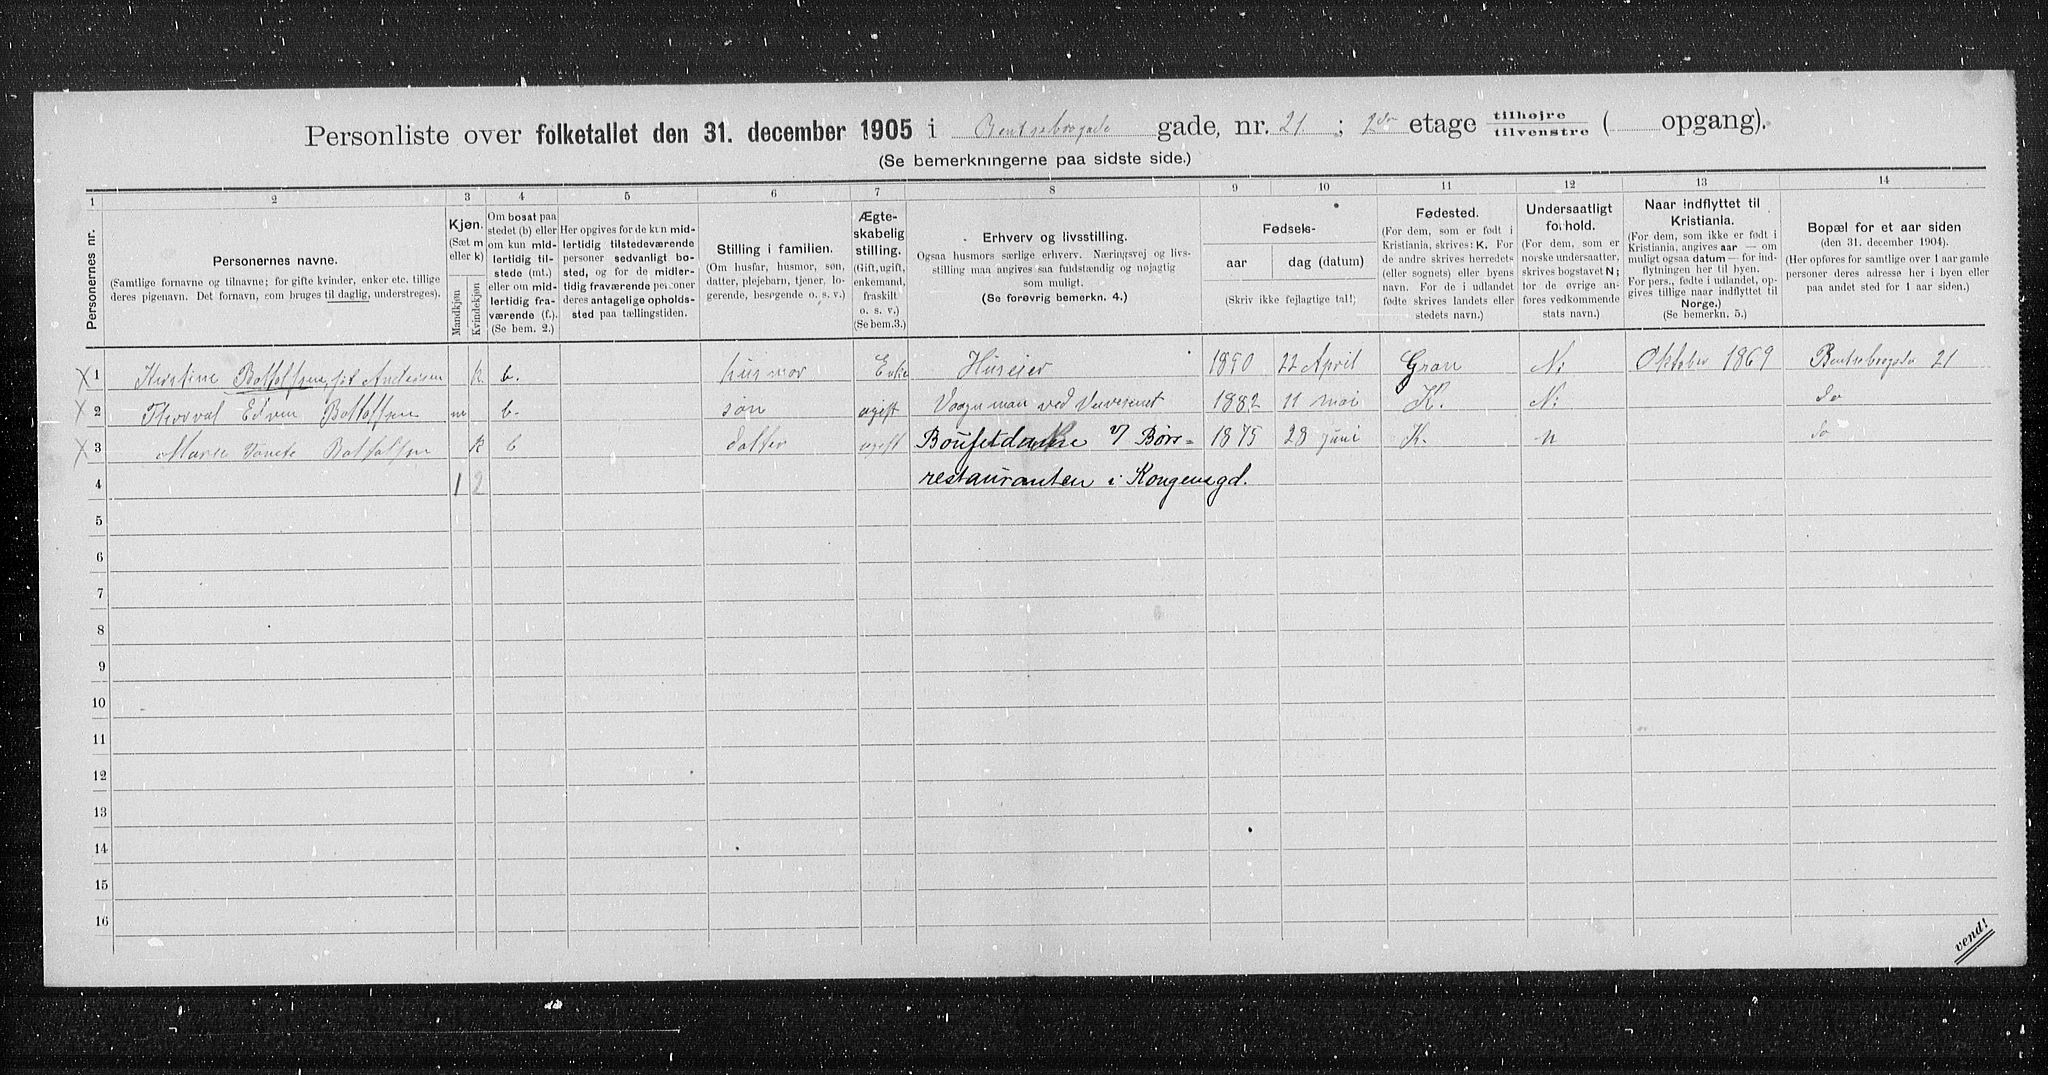 Personliste over folketallet den 31. december 1905 i Bentsebrogade gade, nr. 21 ; 2den etage tilhøjre tilvenstre ( opgang).
(Se bemerkningerne paa sidste side.)
1 2 3 4 5 6 7 8 9 10 11 12 13 14
Personernes nr.
Personernes navne.
(Samtlige fornavne og tilnavne; for gifte kvinder, enker etc. tillige deres pigenavn. Det fornavn, som bruges til daglig, understreges).
Kjøn.
(Sæt m eller k)
Mandkjøn
Kvindekjøn
Om bosat paa stedet (b) eller om kun midlertidig tilstede (mt.) eller om midlertidig fraværende (f.).
(Se bem. 2.)
Her opgives for de kun midlertidig tilstedeværende personer sedvanlig bosted, og for de midlertidig fraværende personer deres antagelige opholdssted paa tællingstiden.
Stilling i familien.
(Om husfar, husmor, søn, datter, plejebarn, tjener, logerende, besøgende o. s. v.)
Ægteskabelig stilling.
(Gift, ugift, enkemand, fraskilt o. s. v.)
(Se bem. 3.)
Erhverv og livsstilling.
Ogsaa husmors særlige erhverv. Næringsvej og livsstilling maa angives saa fuldstændig og nøjagtig som muligt.
(Se forøvrig bemerkn. 4.)
Fødsels-
aar
dag (datum)
(Skriv ikke fejlagtige tal!)
Fødested.
(For dem, som er født i Kristiania, skrives: K. For de andre skrives herredets (eller sognets) eller byens navn. For de i udlandet fødte skrives landets eller stedets navn.)
Undersaatligt forhold.
(For dem, som er norske undersaatter, skrives bogstavet N; for de øvrige anføres vedkommende stats navn.)
Naar indflyttet til Kristiania.
(For dem, som ikke er født i Kristiania, angives aar — om muligt ogsaa datum — for indflytningen her til byen. For pers., fødte i udlandet, opgives tillige naar indflyttet til Norge.)
(Se bemerkn. 5.)
Bopæl for et aar siden
(den 31. december 1904).
(Her opføres for samtlige over 1 aar gamle personer deres adresse her i byen eller paa andet sted for 1 aar siden.)
X 1 Kirstine Bottolfsen føt Andersen k b. husmor Enke Huseier 1850 22 April Gran N: Oktober 1869 Bentsebrogde 21
X 2 Thorval Edvin Bottolfsen m b. søn ugift Vognman ved 1882 11 mai K. N: do
X 3 Marie Bottolfsen k b datter ugift Boufetdame v/ Børs- 1875 28 juni K. N do
4 1 2 restauranten i Kongensgd.
5
6
7
8
9
10
11
12
13
14
15
16
vend!